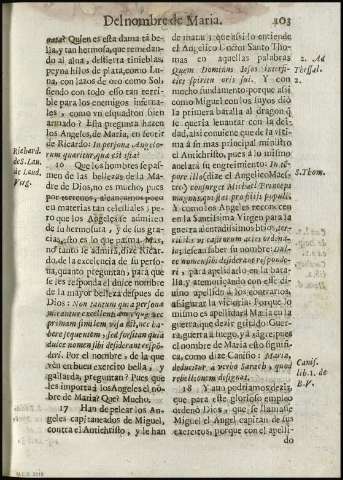 Del nombre de Maria. 103
nata? Quien es esta dama tã be
lla, y tan hermosa, que remedan-
do al alua, destierra tinieblas,
peyna hilos de plata, como Lu-
na, con lazos de oro como Sol,
siendo con todo esso tan terri-
ble para los enemigos inferna-
les, como vn esquadron bien
armado? Esta pregunta hazen
los Angeles, de Maria, en sentir
de Ricardo: In persona Angelo-
rum quæritur, quæ est ista?
16 Que los hombres se pas-
men de las bellezas de la Ma
dre de Dios, no es mucho, pues
por terrenos, alcançamos poco
en materias tan celestiales; pe-
ro que los Angeles se admiren
de su hermosura, y de sus gra-
cias, esso es lo que pasma. Mas,
no tanto se admirã, dize Ricar-
do, de la excelencia de su perso
na, quanto preguntan, para que
se les responda el dulce nombre
de la mayor belleza despues de
Dios: Non tantum quia persona
mirantur excellentiam, quia nec
primam similem visa est, nec ha-
bere sequentem; sed forsitan quia
dulce nomen sibi desiderant respõ-
deri. Por el nombre, de la que
vèn en buen exercito bella, y
gallarda, preguntan? Pues que
les importarà a los Angeles el nõ-
bre de Maria? Què? Mucho.
17 Han de pelear los An-
geles capitaneados de Miguel,
contra el Antichristo, y le han
Richard.
de S. Lau.
de Laud.
Virg.
de matar, que assi lo entiende
el Angelico Doctor Santo Tho-
mas en aquellas palabras
Quem Dominus Iesus interfi-
ciet spiritu oris sui. Y con
mucho fundamento; porque assi
como Miguel con los suyos diò
la primera batalla al dragon, q̃
se queria leuantar con la dei-
dad, assi conuiene que dè la vlti-
ma à su mas principal ministro
el Antichristo, pues à lo mismo
anelarà su engreimiento. In tẽ-
pore illo (dize el Angelico Maes-
tro) consurget Michael Princeps
magnus, qui stat pro filijs populi
Y como los Angeles reconocen
en la Santissima Virgen para la
guerra
dulce nomen sibi desiderant responde-
ri, para apellidarlo en la bata-
lla, y atemorizando con este di-
uino apellido à los contrarios,
assegurar la victoria: Porque lo
mismo es apellidar à Maria en la
guerra, que dezir gritado: Guer-
ra guerra à fuego, y à sãgre; pues
el nombre de Maria esto signifi-
ca, como dize Canisio: Maria,
deducitur à verbo Marah, quod
rebellionem designat.
18 Y aun podriamos dezir,
que para este glorioso empleo
ordenò Dios, que se llamasse
Miguel el Angel capitan de sus
exercitos, porque con el apelli-
do
2. Ad
Thessal.
2.
S. Thom.
Canis.
lib. 1. de
B. V.